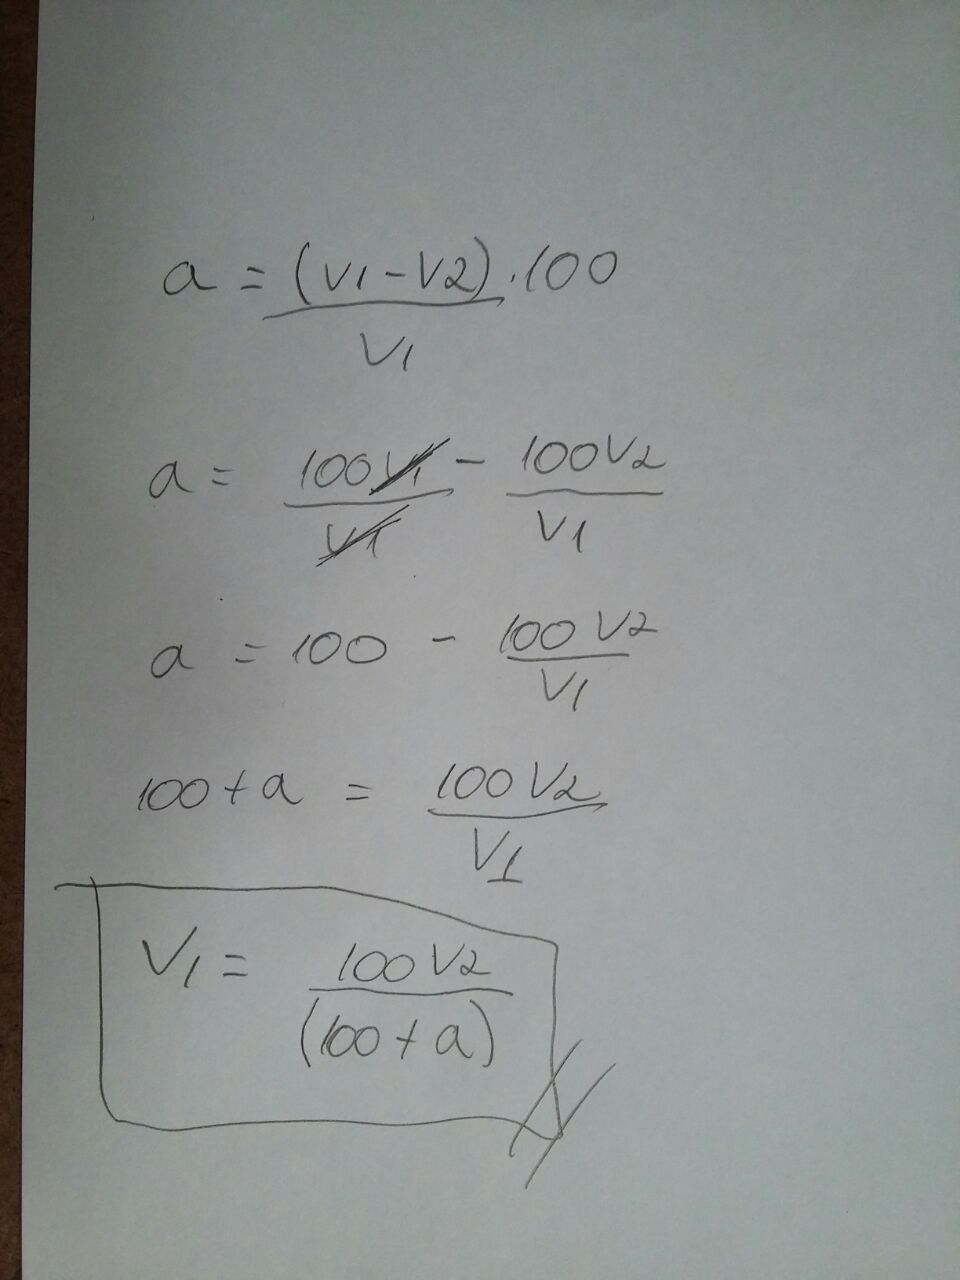 a = (V1 - V2) . 100
V1
a = 100V1 - 100V2
V1 V1
a = 100 - 100 V2
V1
100 + a = 100 V2
V1
V1 = 100 V2
(100 + a)